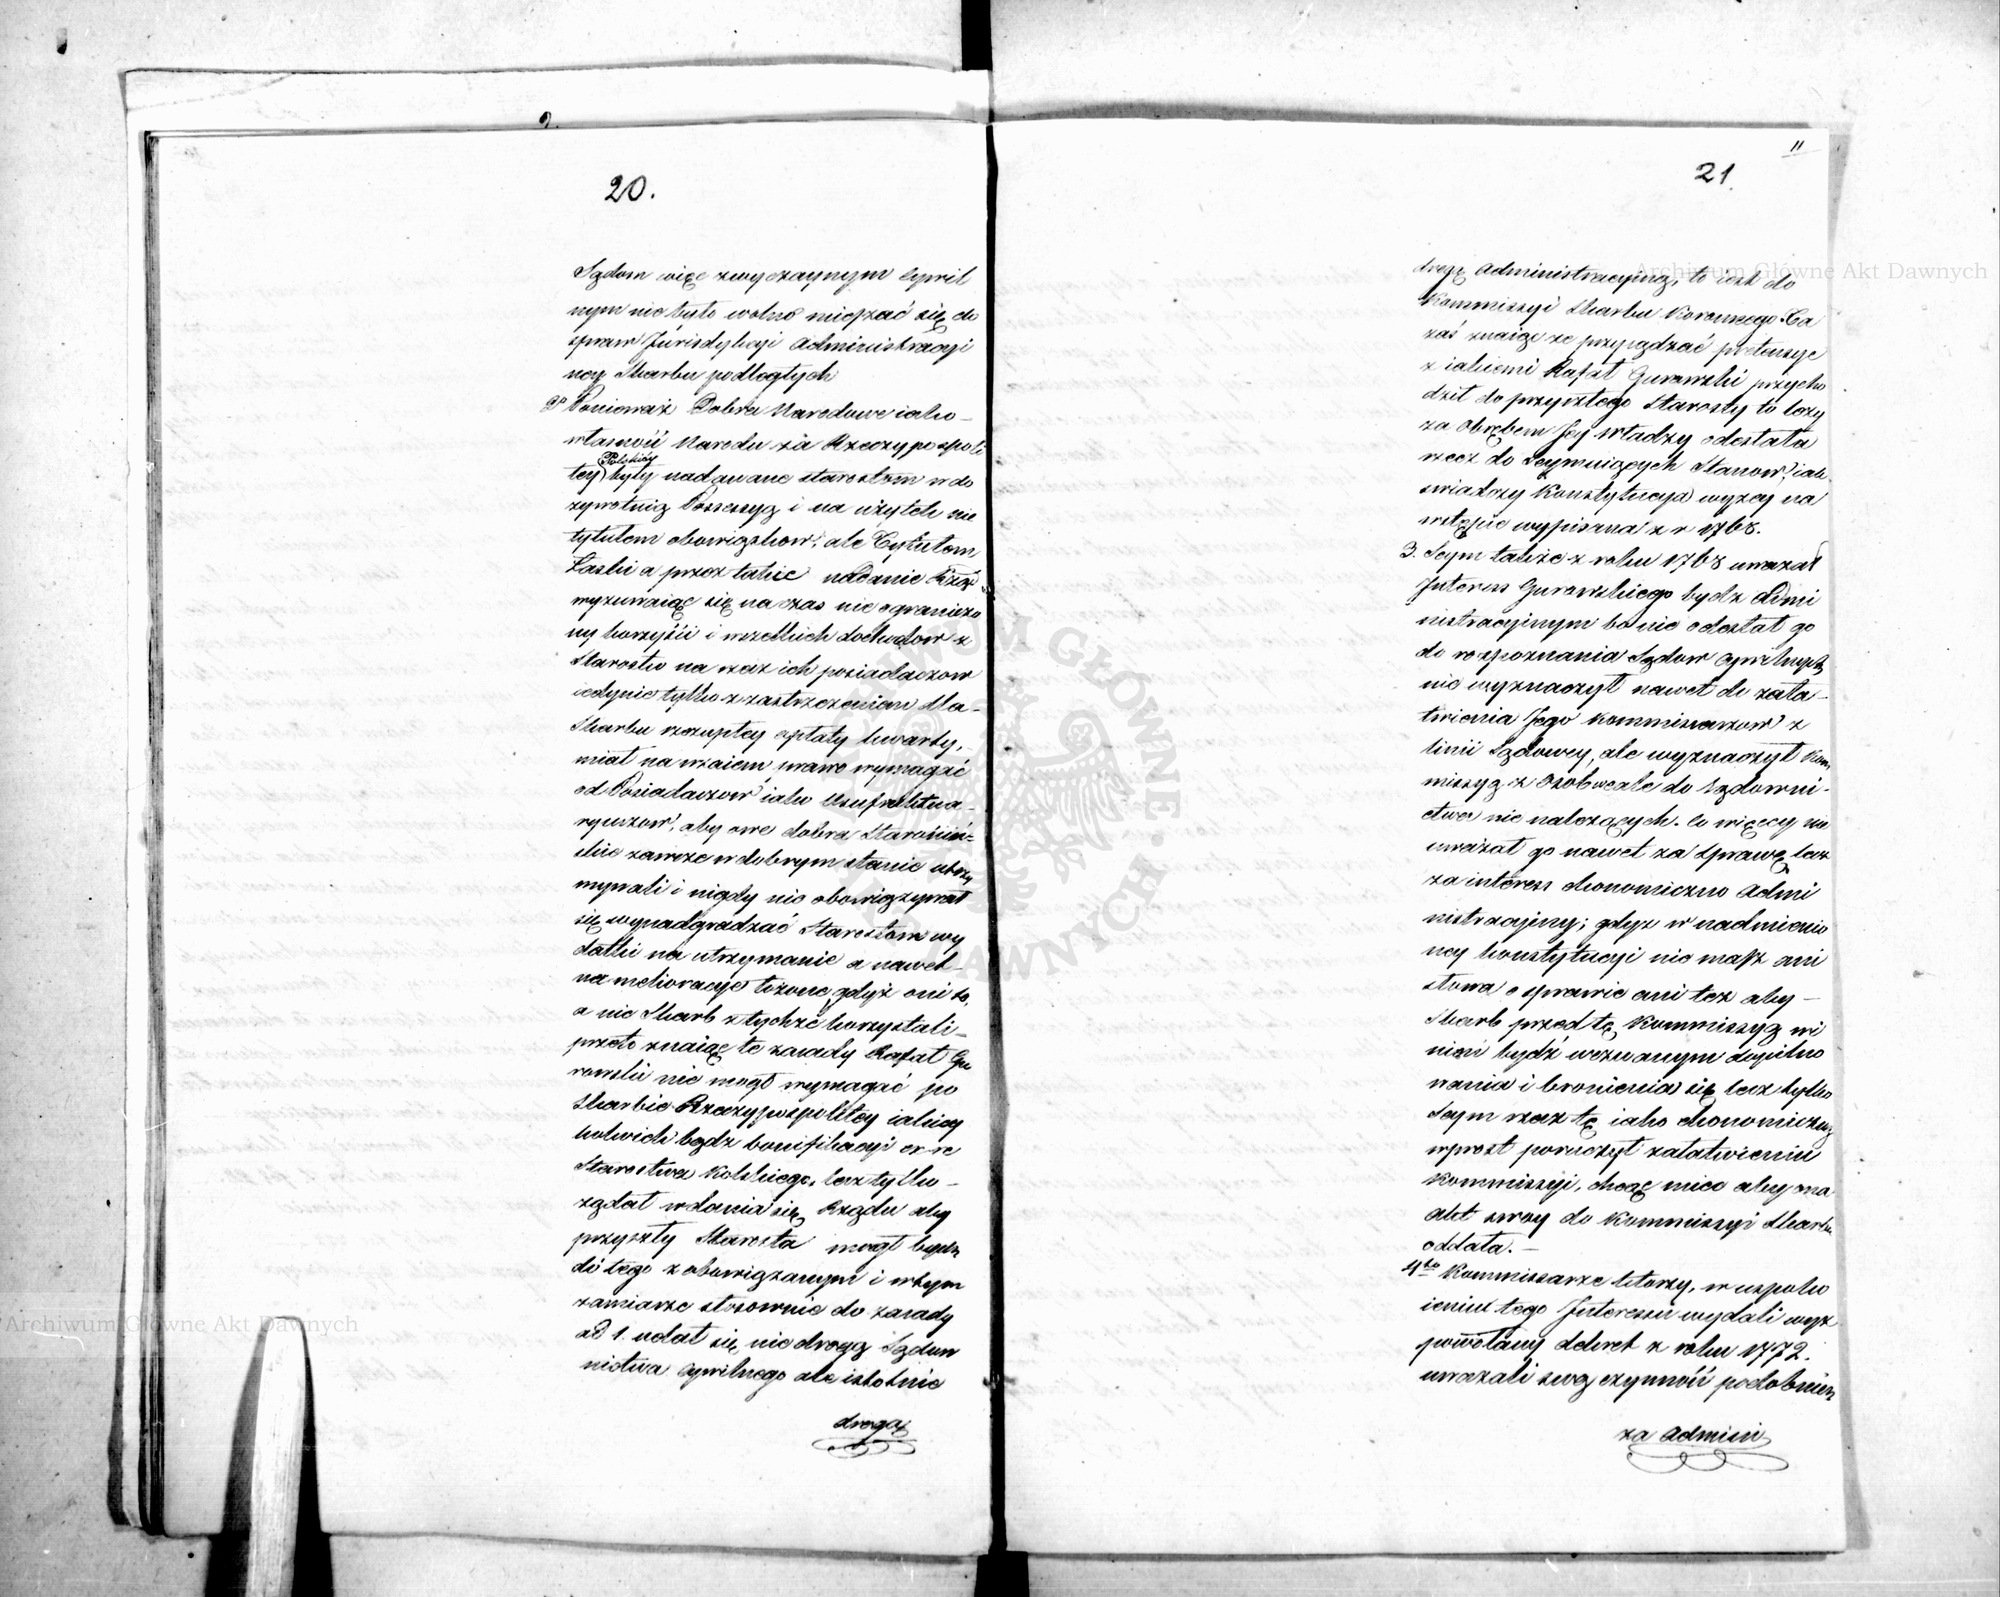 20.
Sądom więc zwyczaynym Cywil
nym nie było wolno mięszać się do
spraw Jurisdykcyi Administracyi
ney Skarbu podległych
2º Ponieważ Dobra Narodowe iako
własność Narodu za Rzeczypospoli
tey Polskiéy były nadawane starostom w do
zywotnią Possessyą i na użytek nie
tytułem obowiązkow, ale Tytułem
Łaski a przez takie nadanie Rząd
wyzuwaiąc się na czas nie ograniczo
ny korzyści i wszelkich dochodow z
Starostw na rzecz ich posiadaczow
iedynie tylko z zastrzeżeniem dla
Skarbu szczupłey opłaty kwarty,
miał nawzaiem prawo wymagać
od Posiadaczow iako Usufruktua
ryuszow, aby owe dobra Starościń
skie zawsze w dobrym stanie utrzy
mywali i nigdy nie obowiązywał
się wynadgradzać Starostom wy
datki na utrzymanie a nawet
na melioracye łożone, gdyż oni to,
a nie Skarb z tychże korzystali
przeto znaiąc te zasady Rafał Gu
rowski nie mogł wymagać po
Skarbie Rzeczypospolitey iakiey
kolwiek bądz bonifikacyi ex re
Starostwa Kolskiego, lecz tylko
żądał wdania się Rządu aby
przyszły Starosta mogł bydz
do tego zobowiązanym i w tym
zamiarze stosownie do zasady
ad 1. udał się nie drogą Sądow
nictwa Cywilnego ale istotnie
drogą
11
21.
drogą Administracyiną, to iest do
Kommissyi Skarbu Koronnego. Ta
zaś znaiąc że przysądzać pretensye
z iakiemi Rafał Gurowski przycho
dził do przyszłego Starosty to leży
za obrębem Jey Władzy odesłała
rzecz do Seymuiących Stanow, iak
swiadczy Konstytucya wyżey na
wstępie wypisana z r 1768.
3. Seym także z roku 1768 uważał
Interess Gurowskiego bydz Admi
nistracyinym bo nie odesłał go
do rozpoznania Sądow Cywilnych
nie wyznaczył nawet do zała
twienia Jego Kommissarzow z
linii Sądowey, ale wyznaczył Kom
missyą z Osob wcale do Sądowni
ctwa nie należących. Co więcey nie
uważał go nawet za sprawę, lecz
za interess ekonomiczno Admi
nistracyjny; gdyż w nadmienio
ney konstytucyi nie masz ani
słowa o sprawie ani też aby
Skarb przed tę Kommissyą wi
nien bydź wezwanym dopilno
wania i bronienia się lecz tylko
Seym rzecz tę iako ekonomiczną
wprost poruczył załatwieniu
Kommissyi, chcąc mieć aby ona
akt swoy do Kommissyi Skarbu
oddała.
4to Kommissarze ktorzy, w uspoko
ieniu tego Interessu wydali wyż
powołany dekret z roku 1772.
uważali swą czynność podobnież
za Admini
Archiwum Główne Akt Dawnych
Archiwum Główne Akt Dawnych